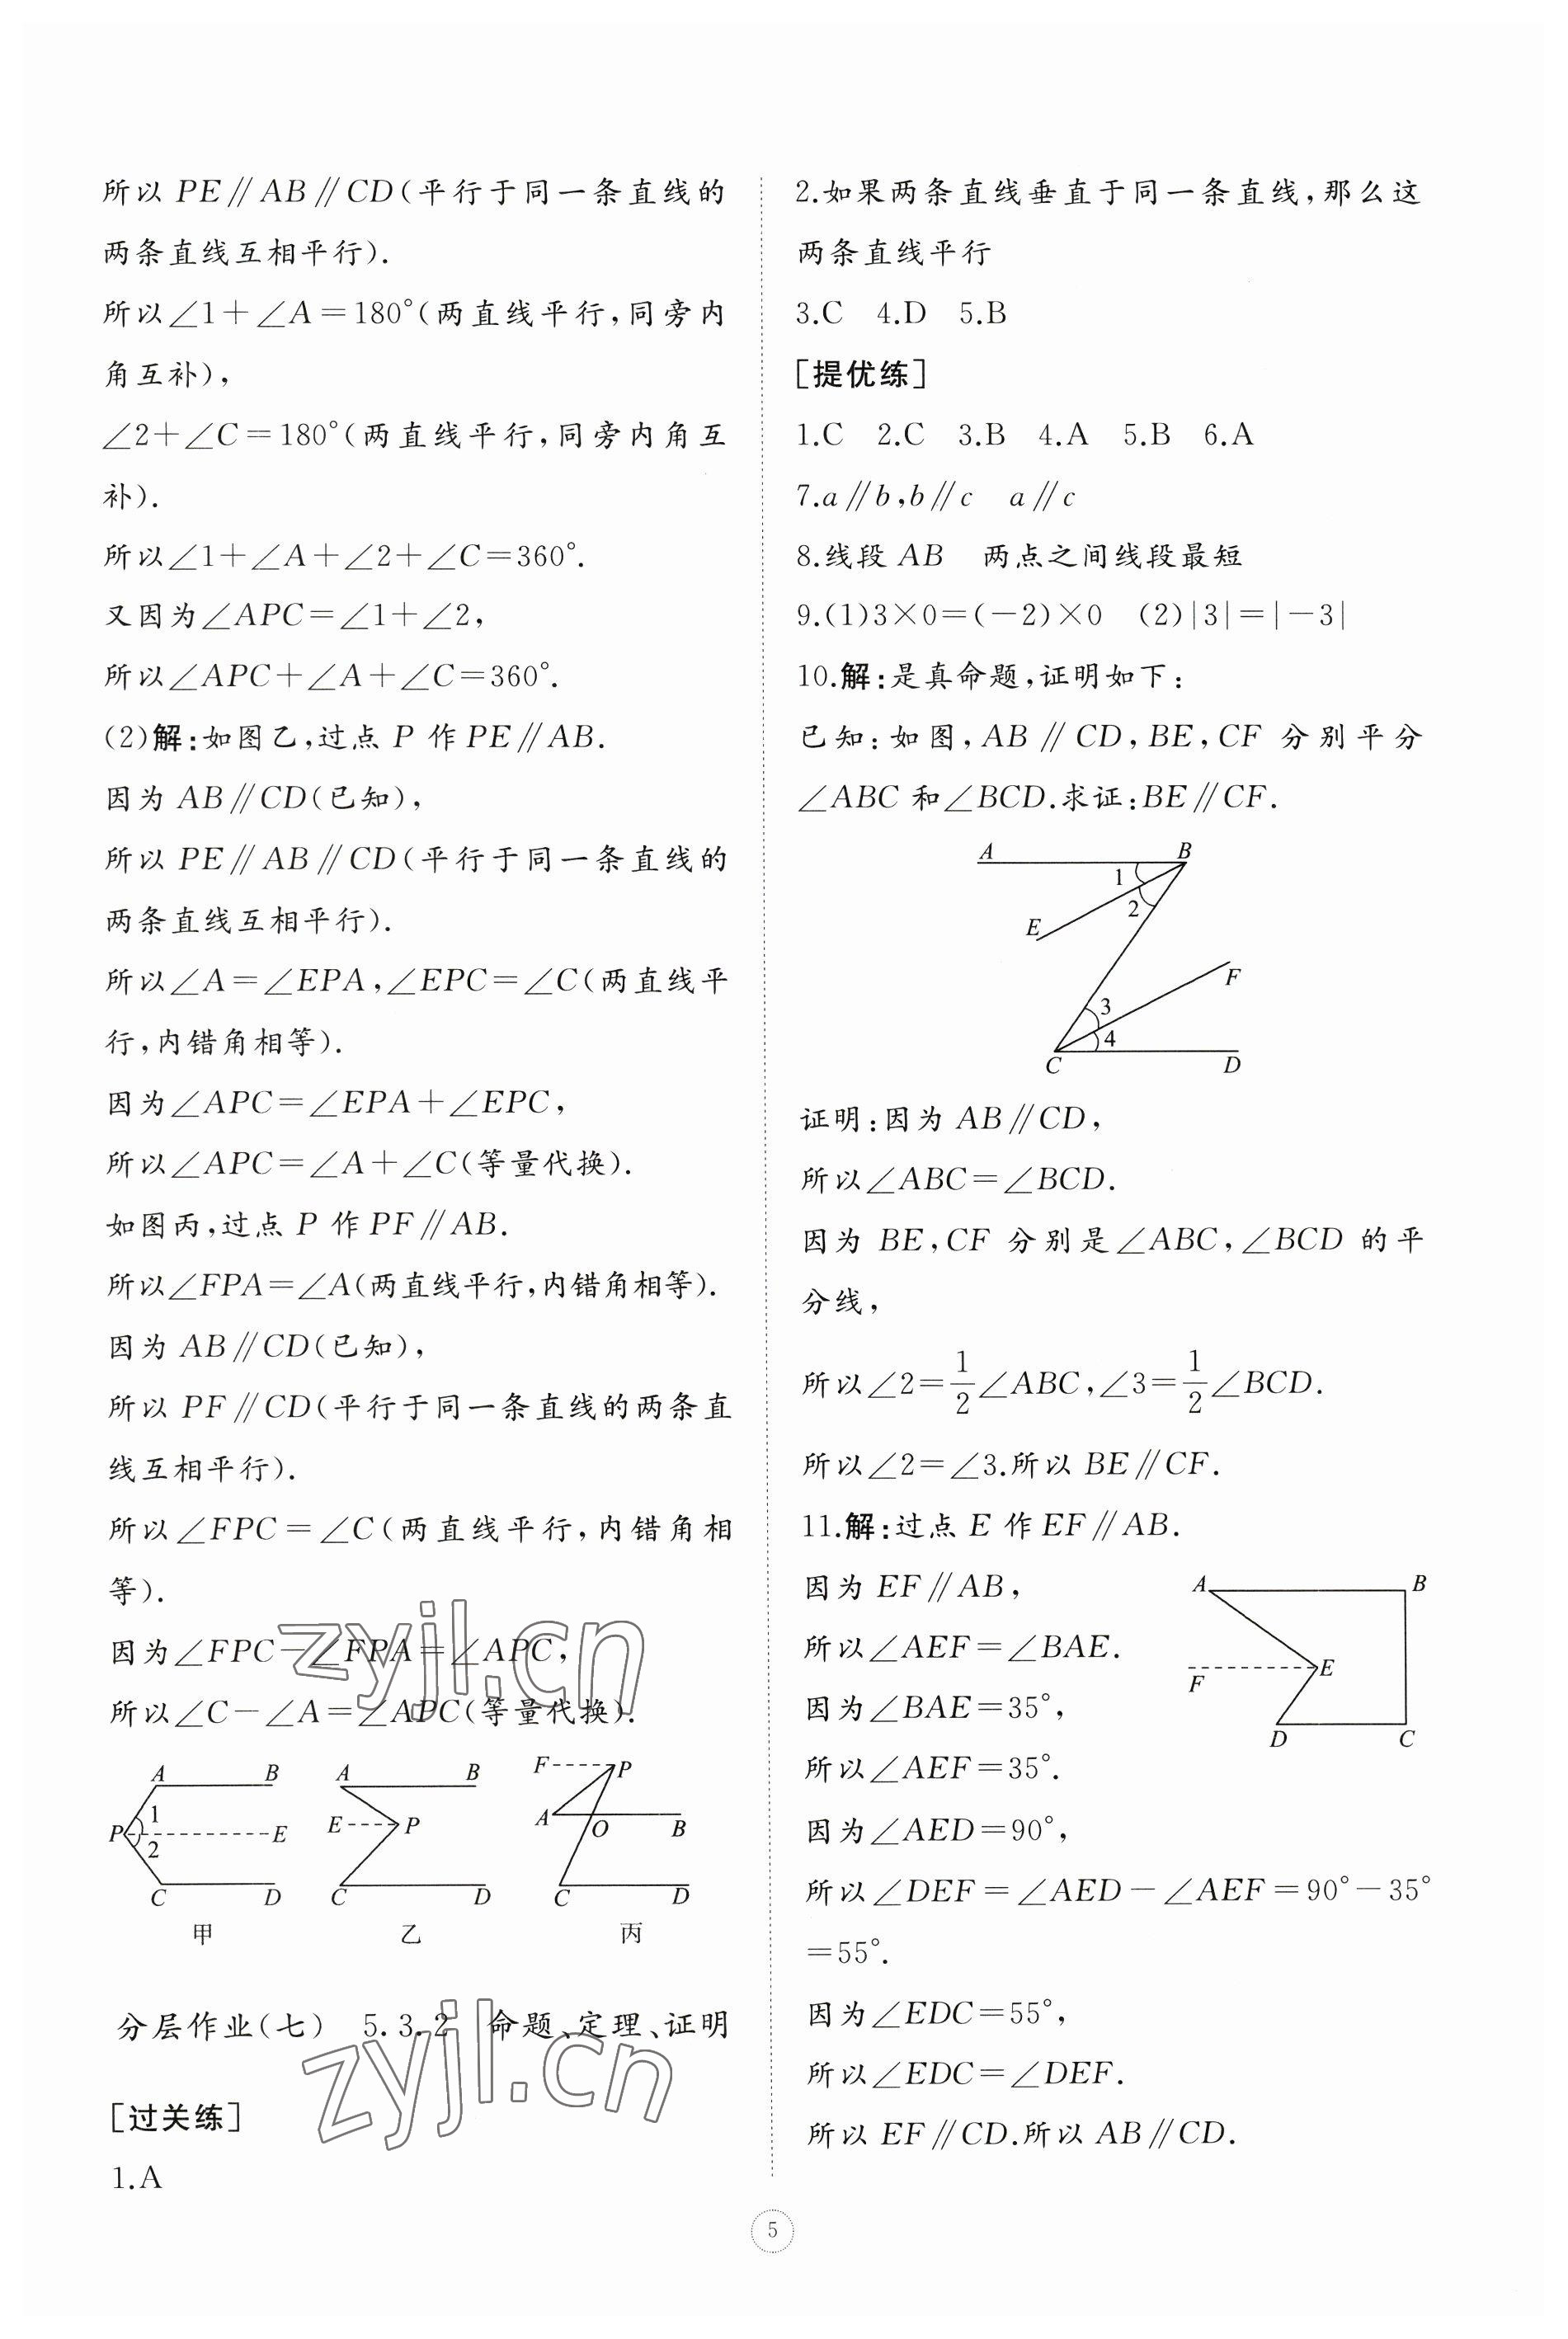 所以 PE∥AB∥CD(平行于同一条直线的
两条直线互相平行).
所以∠1+∠A=180°(两直线平行,同旁内
角互补),
∠2+∠C=180°(两直线平行,同旁内角互
补).
所以∠1+∠A+∠2+∠C=360°.
又因为∠APC=∠1+∠2,
所以∠APC+∠A+∠C=360°.
(2)解:如图乙,过点 P 作 PE∥AB.
因为 AB∥CD(已知),
所以 PE∥AB∥CD(平行于同一条直线的
两条直线互相平行).
所以∠A=∠EPA,∠EPC=∠C(两直线平
行,内错角相等).
因为∠APC=∠EPA+∠EPC,
所以∠APC=∠A+∠C(等量代换).
如图丙,过点 P 作 PF∥AB.
所以∠FPA=∠A(两直线平行,内错角相等).
因为 AB∥CD(已知),
所以 PF∥CD(平行于同一条直线的两条直
线互相平行).
所以∠FPC=∠C(两直线平行,内错角相
等).
因为∠FPC-∠FPA=∠APC,
所以∠C-∠A=∠APC(等量代换).
zyjl.cn
A B
P 1 2 E
C D
甲
A B
E P
C D
乙
F P
A O B
C D
丙
分层作业(七) 5.3.2 命题、定理、证明
zyjl.cn
[过关练]
1.A
2.如果两条直线垂直于同一条直线,那么这
两条直线平行
3.C 4.D 5.B
[提优练]
1.C 2.C 3.B 4.A 5.B 6.A
7.a∥b,b∥c a∥c
8.线段 AB 两点之间线段最短
9.(1)3×0=(-2)×0 (2)|3|=|-3|
10.解:是真命题,证明如下:
已知:如图,AB∥CD,BE,CF 分别平分
∠ABC 和∠BCD.求证:BE∥CF.
A B
1
2
E
F
3
4
C D
证明:因为 AB∥CD,
所以∠ABC=∠BCD.
因为 BE,CF 分别是∠ABC,∠BCD 的平
分线,
所以∠2=1/2∠ABC,∠3=1/2∠BCD.
所以∠2=∠3.所以 BE∥CF.
11.解:过点 E 作 EF∥AB.
因为 EF∥AB,
所以∠AEF=∠BAE.
因为∠BAE=35°,
所以∠AEF=35°.
因为∠AED=90°,
所以∠DEF=∠AED-∠AEF=90°-35°
=55°.
因为∠EDC=55°,
所以∠EDC=∠DEF.
所以 EF∥CD.所以 AB∥CD.
A B
E
F
D C
5